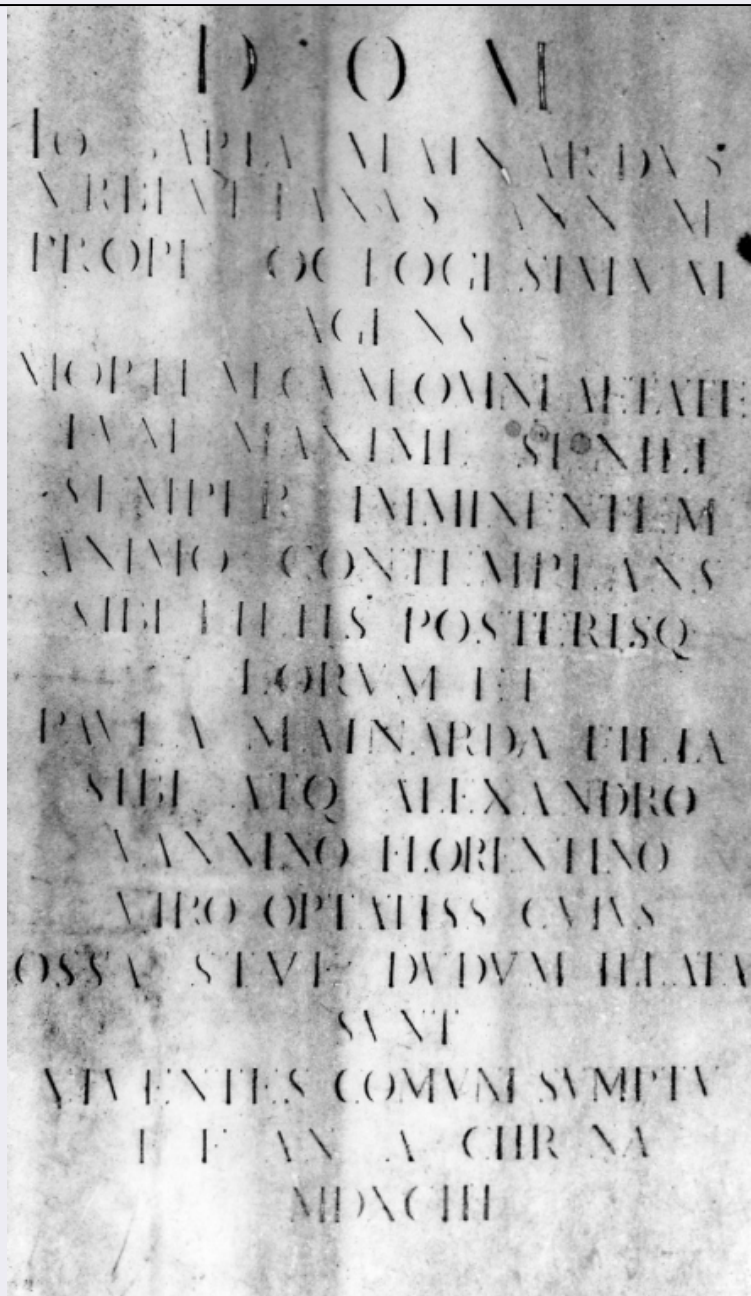 D O M
IO MARIA MAINARDVS
VRBEVETANVS ANNVM
PROPE OCTOGESIMVM
AGENS
MORTEM CVM OMNI AETATE
TVM MAXIME SENILI
SEMPER IMMINENTEM
ANIMO CONTEMPLANS
SIBI FILIIS POSTERISQ
EORVM ET
PAVLA MAINARDA FILIA
SIBI ATQ ALEXANDRO
VANNINO FLORENTINO
VIRO OPTATISS CVIVS
OSSA DVDVM ILLATA
SVNT
VIVENTES COMVNI SVMPTV
F F AN A CHR NA
MDXCIII